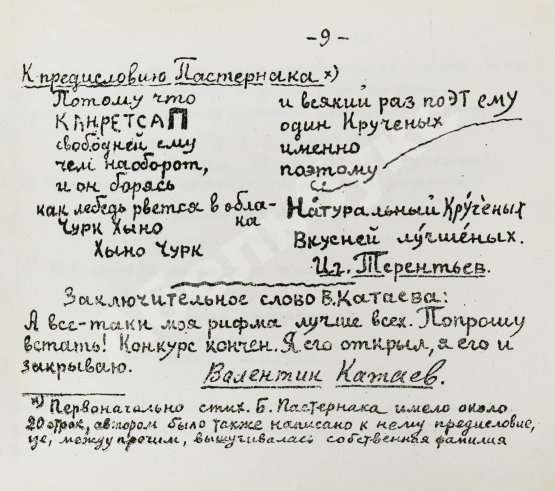 -9-
К предисловию Пастернака *)
Потому что
КАНРЕТСАП
свободней ему
чем наоборот,
и он борясь
как лебедь рвется в обла-
ка
Чурк Хыно
Хыно Чурк
и всякий раз поЭТ ему
один Крученых
именно
поэтому
Натуральный Кру́ченых
Вкусней лу́чшеных.
Иг. Терентьев.
Заключительное слово В. Катаева:
А все-таки моя рифма лучше всех. Попрошу
встать! Конкурс кончен. Я его открыл, я его и
закрываю.
Валентин Катаев.
*) Первоначально стих. Б. Пастернака имело около
20 строк, автором было также написано к нему предисловие,
где, между прочим, вышучивалась собственная фамилия